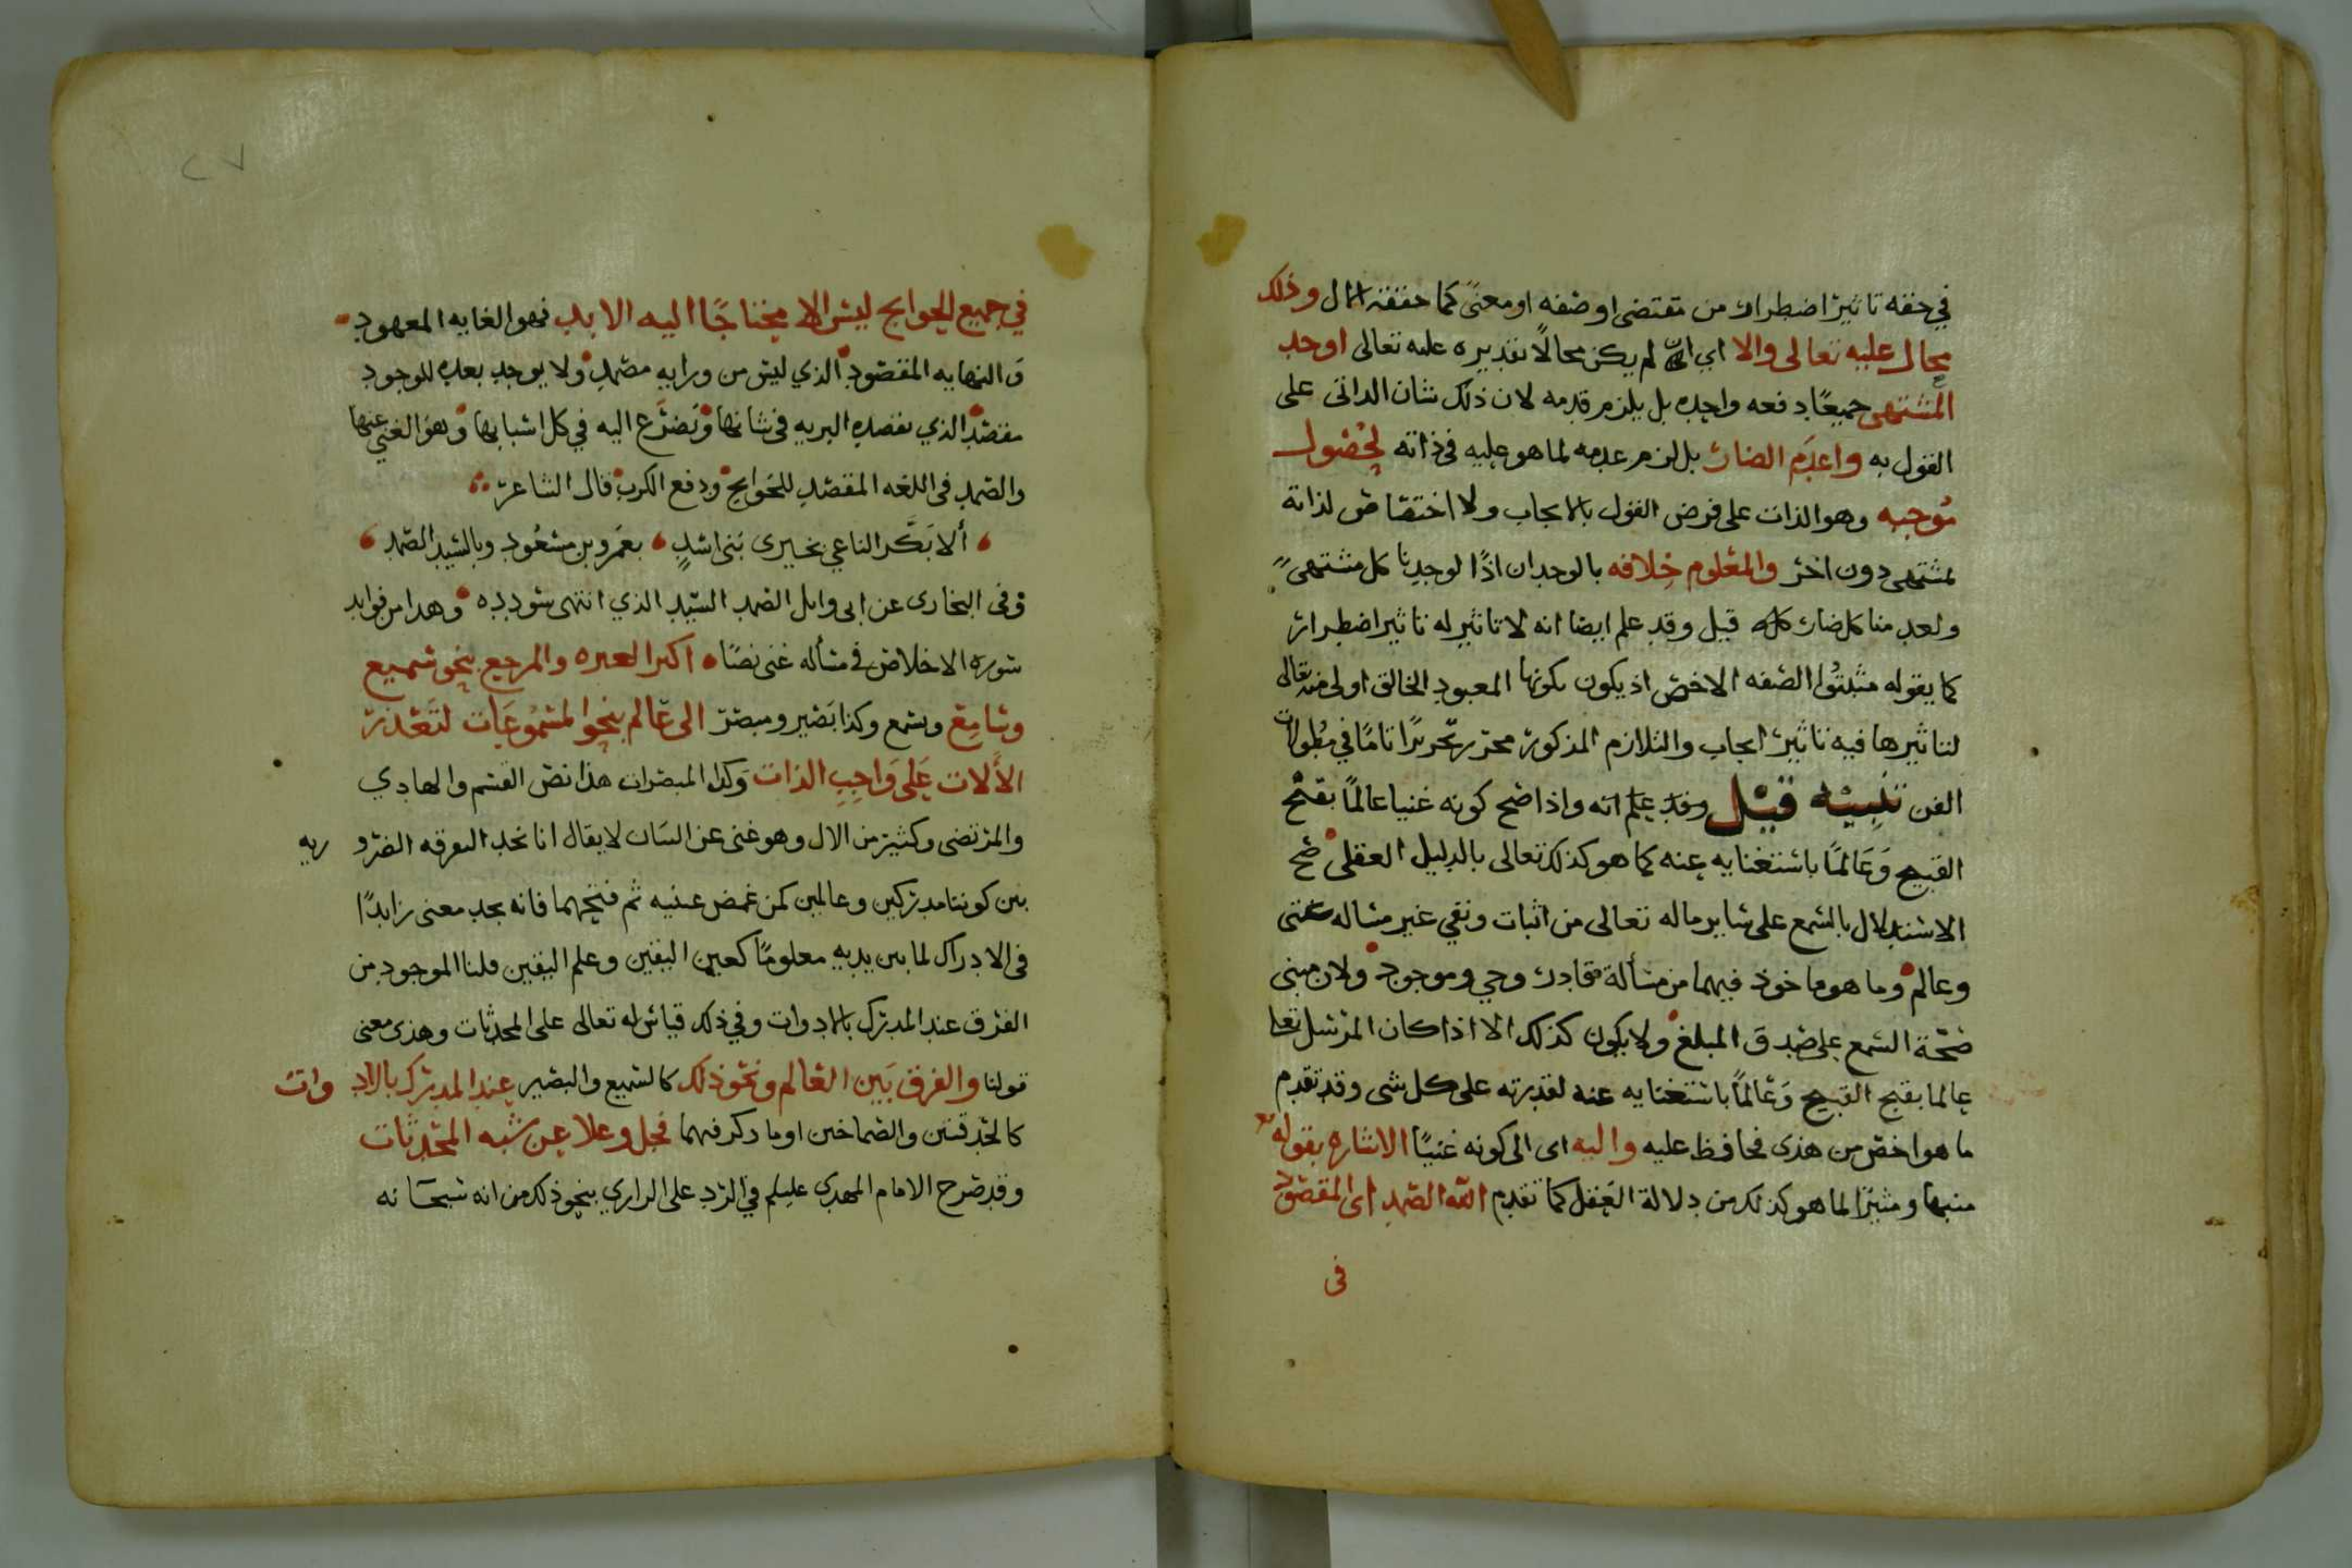 في حقه تاثير اضطرار من مقتضى او صفه او معنىً كما حققه الال وذلك
محال عليه تعالى والا اي لم يكن محالًا تقديره عليه تعالى اوجد
المشتهى جميعًا دفعه واحده بل يلزم قدمه لان ذلك شان الذاتى على
القول به واعدَم الضار بل لزم عدمه لما هو عليه في ذاته لحُصُول
مُوجبه وهو الذات على فرض القول بالايجاب ولا اختصاص لذاته
بمشتهى دون اخر والمعْلوم خِلافه بالوجدان اذًا لوجدنا كل مشتهىً
ولعدمنا كل ضار كله قيل وقد علم ايضا انه لا تاثير له تاثير اضطرار
كما يقوله مثبتُوا الصفه الاخص اذ يكون بكونها المعبود الخالق اولى منه تعالى
لتاثيرها فيه تاثير ايجاب والتلازم المذكور محرر تحريرًا تامًا في مطولات
الفن تنبيْه قيْل وقد علم انه واذا صح كونه غنيا عالمًا بقبح
القبيح وَعَالمًا باستغنايه عنه كما هو كذلك تعالى بالدليل العقلى صح
الاستدلال بالسمع على ساير ماله تعالى من اثبات ونفي غير مساله غنى
وعالم وما هو ماخوذ فيهما من مسألة قادر وحي وموجود ولان مبنى
صحّة السمع على صدق المبلغ ولا يكون كذلك الا اذا كان المرسل تعا
عالما بقبح القبيح وَعَالمًا باستغنايه عنه لقدرته على كل شى وقد تقدم
ما هو اخصر من هذى فحافظ عليه واليه اى الى كونه غنيًا الاشاره بقوله
منبها ومشيرًا لما هو كذلك من دلالة العَقل كما تقدم الله الصمد اى المقصود
في
في جميع الحوايج ليس الا محتاجًا اليه الابد فهو الغايه المعهود
وَالنهايه المقصود الذي ليس من ورايه مصمد ولا يوجد بعده للوجود
مقصد الذي تقصده البريه في شانها وتَضرَّع اليه في كل اسبابها وهو الغني عنها
والصمد فى اللغه المقصد للحَوايج ودفع الكرب قال الشاعر
ألا بَكَّر الناعي بخيرى بَنى اسدٍ بعَمرو بن مسعُود وبالسَيد الصّمد
وفى البخارى عن ابى وايل الصمد السَيّد الذي انتهى سودده وهدا من فوايد
سوره الاخلاص في مسأله غنى نصًا اكبر العبره والمرجع بنحو سميع
وسَامع ويسمع وكذا بَصير ومبصر الى عَالم بنحو المسمُوعَات لتَعَذر
الأَلات عَلى وَاجِبِ الذات وَكذا المبصرات هذا نص القسم والهادي
والمرتضى وكثير من الال وهو غنى عن البيان لا يقال انا نجد التفرقه الضرو ريه
بين كوننا مدركين وعالمين كمن غمض عينيه ثم فتحهما فانه يجد معنى زايدًا
في الادراك لما بين يديه معلومًا كعين اليقين وعلم اليقين قلنا الموجود من
الفرق عند المدرك بالادوات وفي ذلك قياس له تعالى على المحدثات وهذى معنى
قولنا والفرق بَين العَالم ونحْو ذلك كالسَميع والبصير عند المدرك بالاد وات
كالحدقتين والصماخين او ما ذكر فيهما فجل وعلا عن شبه المحْدثات
وقد صرح الامام المهدى عليلم في الرّد على الرازي بنحو ذلك من انه سُبحَانه